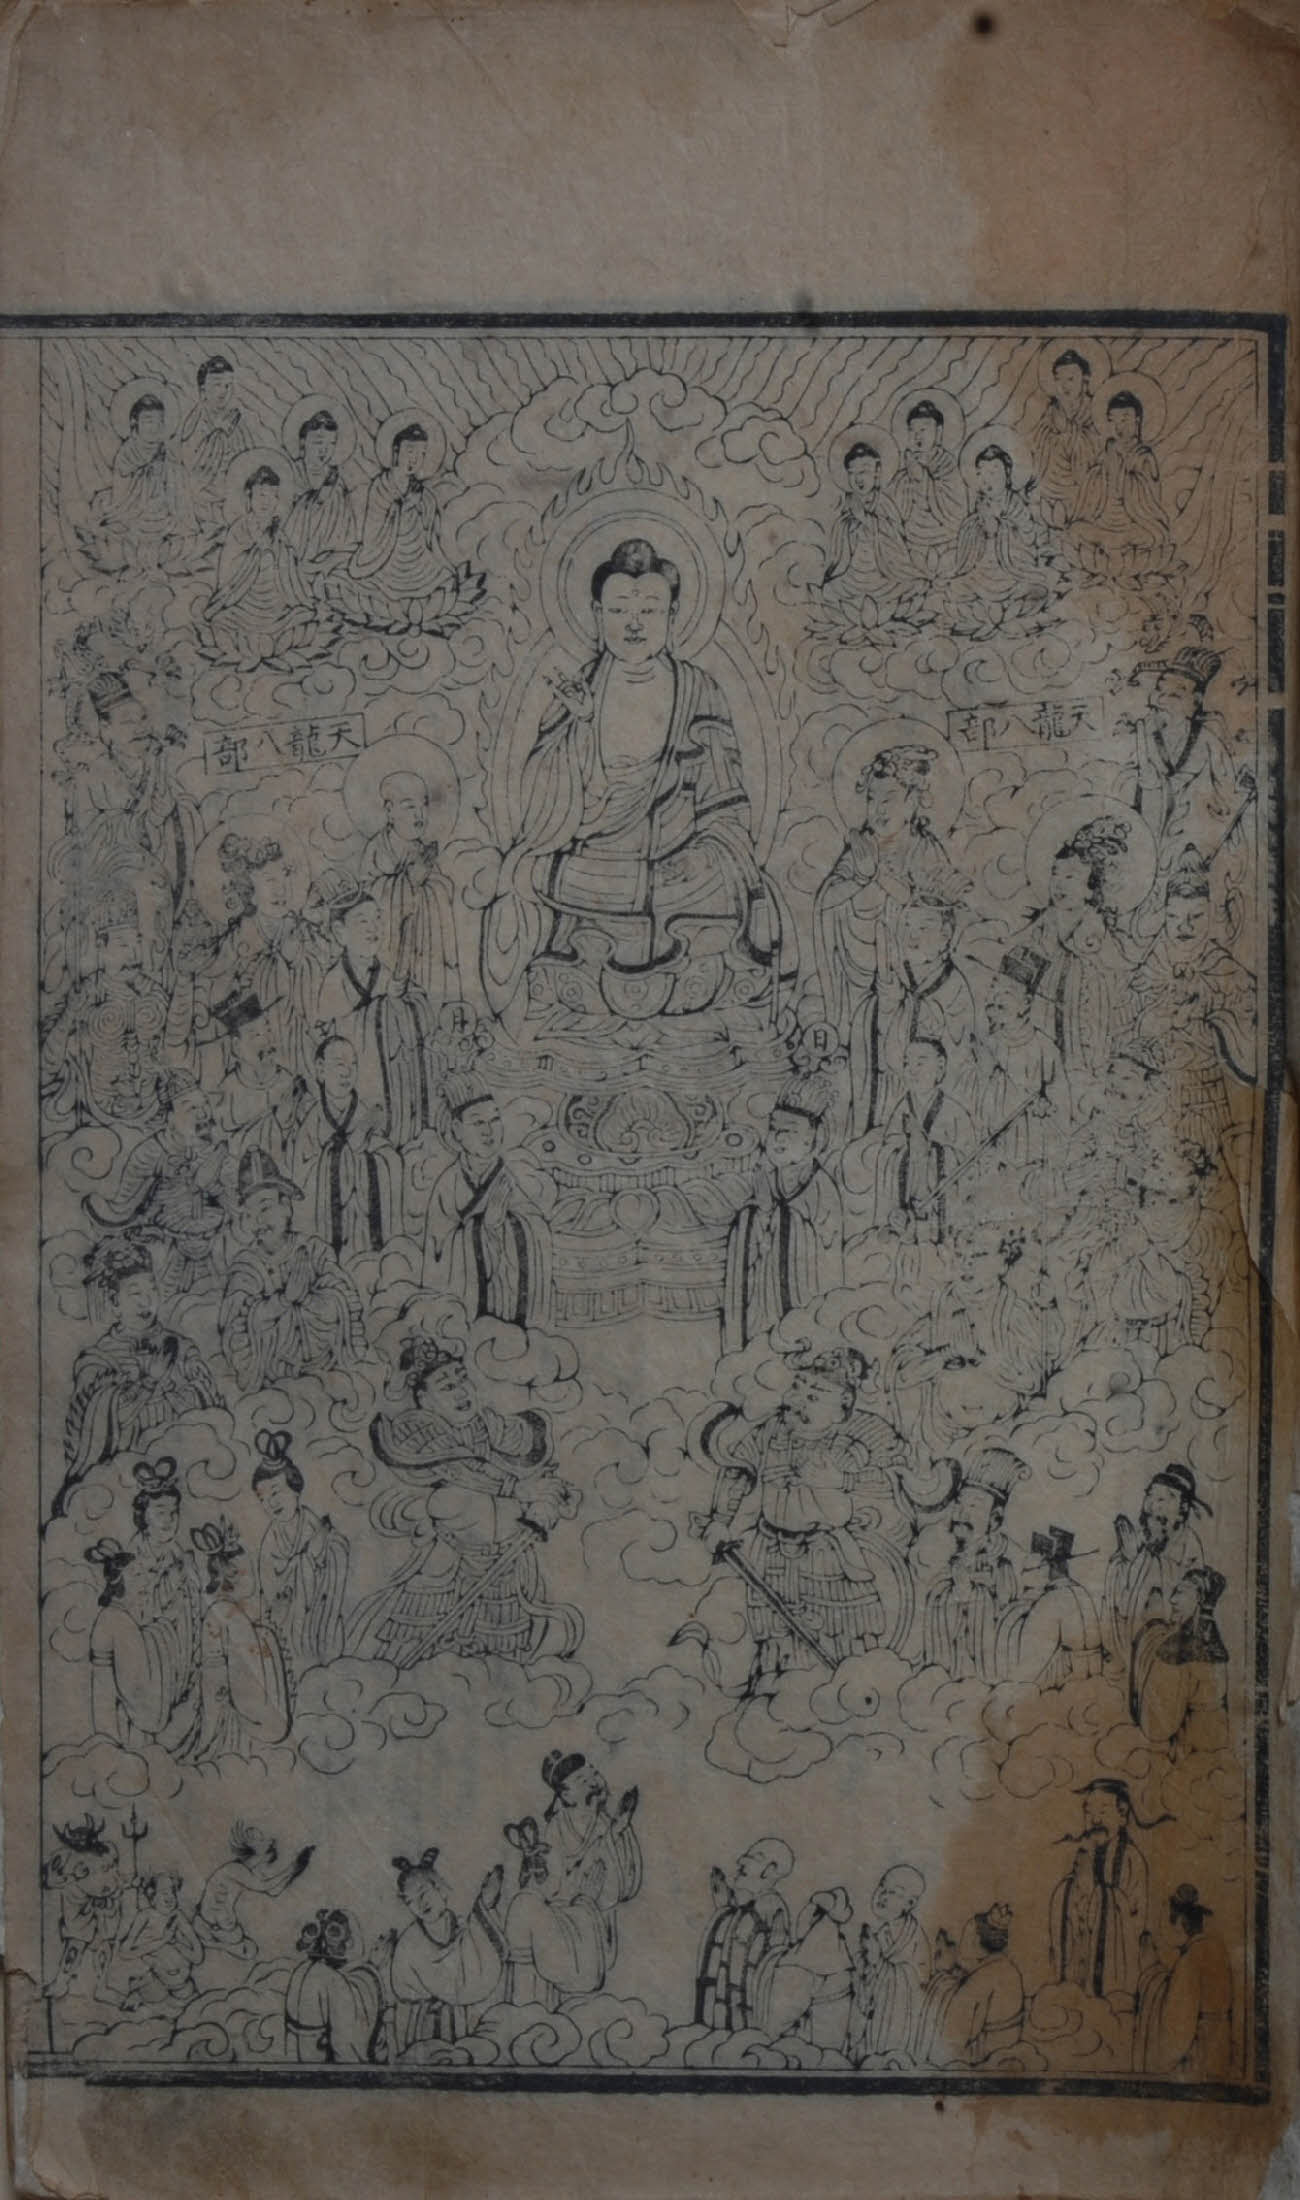 天龍八部
天龍八部
日
月